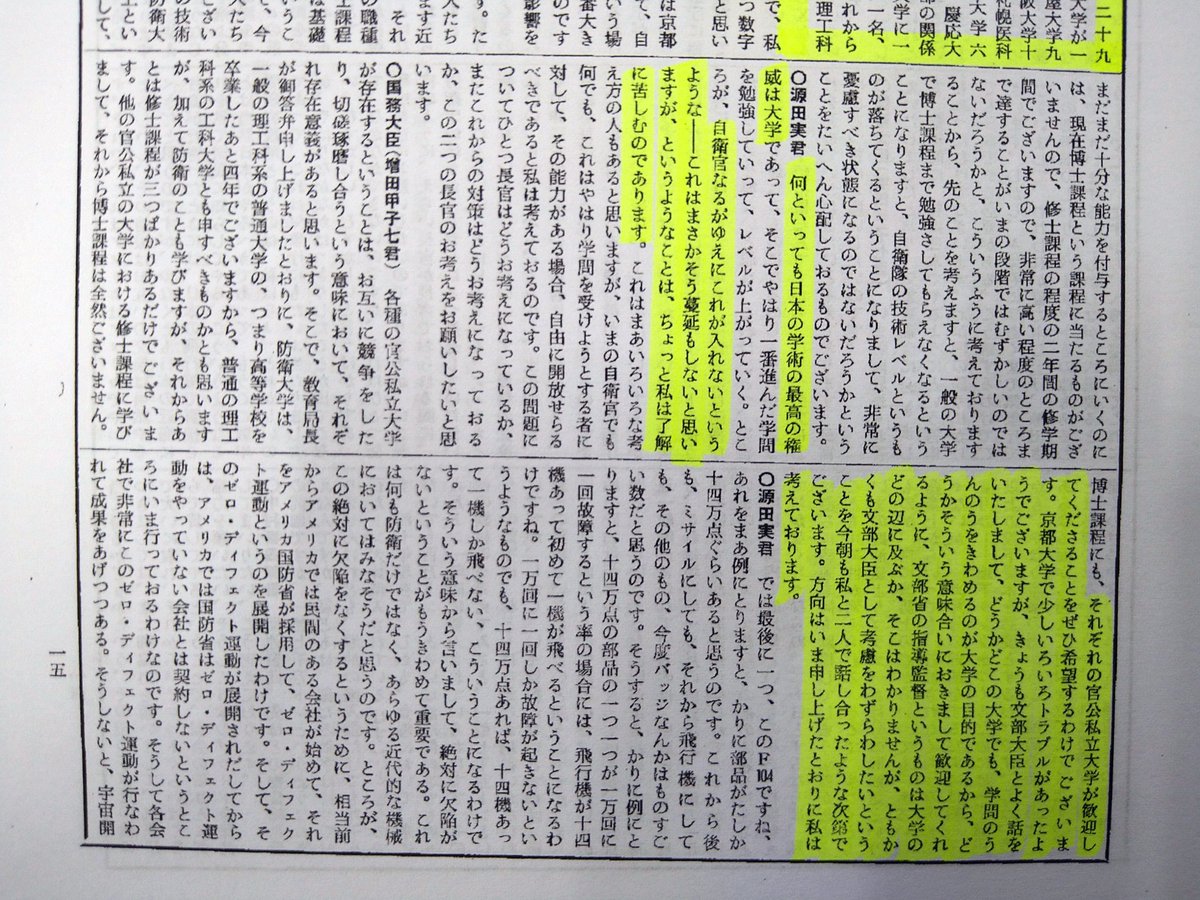 二十九
大学が一
屋大学九
阪大学十
札幌医科
大学六
慶応大
部の関係
大学に一
一名、
れから
理工科
で、私
つ数字
と思い
は京都
て、自
いう場
番大き
のです
影響を
す。た
人たち
ます近
それ
の職種
士課程
は基礎
で、今
いうこ
ござい
の技術
防衛大
士とい
まだまだ十分な能力を付与するところにいくのに
は、現在博士課程という課程に当たるものがござ
いませんので、修士課程の程度の二年間の修学期
間でございますので、非常に高い程度のところま
で達することがいまの段階ではむずかしいのでは
ないだろうかと、こういうふうに考えております
ることから、先のことを考えますと、一般の大学
で博士課程まで勉強さしてもらえなくなるという
ことになりますと、自衛隊の技術レベルというも
のが落ちてくるということになりまして、非常に
憂慮すべき状態になるのではないだろうかという
ことをたいへん心配しておるものでございます。
〇源田実君 何といっても日本の学術の最高の権
威は大学であって、そこでやはり一番進んだ学問
を勉強していって、レベルが上がっていく。とこ
ろが、自衛官なるがゆえにこれが入れないという
ような――これはまさかそう蔓延もしないと思い
ますが、というようなことは、ちょっと私は了解
に苦しむのであります。これはまあいろいろな考
え方の人もあると思いますが、いまの自衛官でも
何でも、これはやはり学問を受けようとする者に
対して、その能力がある場合、自由に開放せらる
べきであると私は考えておるのです。この問題に
ついてひとつ長官はどうお考えになっているか、
またこれからの対策はどうお考えになっておる
か、この二つの長官のお考えをお願いしたいと思
います。
〇国務大臣(増田甲子七君) 各種の官公私立大学
が存在するということは、お互いに競争をした
り、切磋琢磨し合うという意味において、それぞ
れ存在意義があると思います。そこで、教育局長
が御答弁申し上げましたとおりに、防衛大学は、
一般の理工科系の普通大学の、つまり高等学校を
卒業したあと四年でございますから、普通の理工
科系の工科大学とも申すべきものかとも思います
が、加えて防衛のことも学びますが、それからあ
とは修士課程が三つばかりあるだけでございま
す。他の官公私立の大学における修士課程に学び
まして、それから博士課程は全然ございません。
博士課程にも、それぞれの官公私立大学が歓迎し
てくださることをぜひ希望するわけでございま
す。京都大学で少しいろいろトラブルがあったよ
うでございますが、きょうも文部大臣とよく話を
いたしまして、どうかどこの大学でも、学問のう
んのうをきわめるのが大学の目的であるから、ど
うかそういう意味合いにおきまして歓迎してくれ
るように、文部省の指導監督というものは大学の
どの辺に及ぶか、そこはわかりませんが、ともか
くも文部大臣として考慮をわずらわしたいという
ことを今朝も私と二人で話し合ったような次第で
ございます。方向はいま申し上げたとおりに私は
考えております。
〇源田実君 では最後に一つ、このF104ですね、
あれをまあ例にとりますと、かりに部品がたしか
十四万点ぐらいあると思うのです。これから後
も、ミサイルにしても、それから飛行機にして
も、その他のもの、今度バッジなんかはものすご
い数だと思うのです。そうすると、かりに例にと
りますと、十四万点の部品の一つ一つが一万回に
一回故障するという率の場合には、飛行機が十四
機あって初めて一機が飛べるということになるわ
けですね。一万回に一回しか故障が起きないとい
うようなものでも、十四万点あれば、十四機あっ
て一機しか飛べない、こういうことになるわけで
す。そういう意味から言いまして、絶対に欠陥が
ないということがもうきわめて重要である。これ
は何も防衛だけではなく、あらゆる近代的な機械
においてはみなそうだと思うのです。ところが、
この絶対に欠陥をなくするというために、相当前
からアメリカでは民間のある会社が始めて、それ
をアメリカ国防省が採用して、ゼロ・ディフェク
ト運動というのを展開したわけです。そして、そ
のゼロ・ディフェクト運動が展開されだしてから
は、アメリカでは国防省はゼロ・ディフェクト運
動をやっていない会社とは契約しないというとこ
ろにいま行っておるわけなのです。そうして各会
社で非常にこのゼロ・ディフェクト運動が行なわ
れて成果をあげつつある。そうしないと、宇宙開
一五